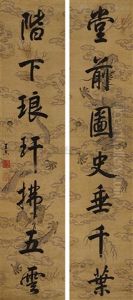 堂前圖史垂千葉
階下琅玕拂五雲